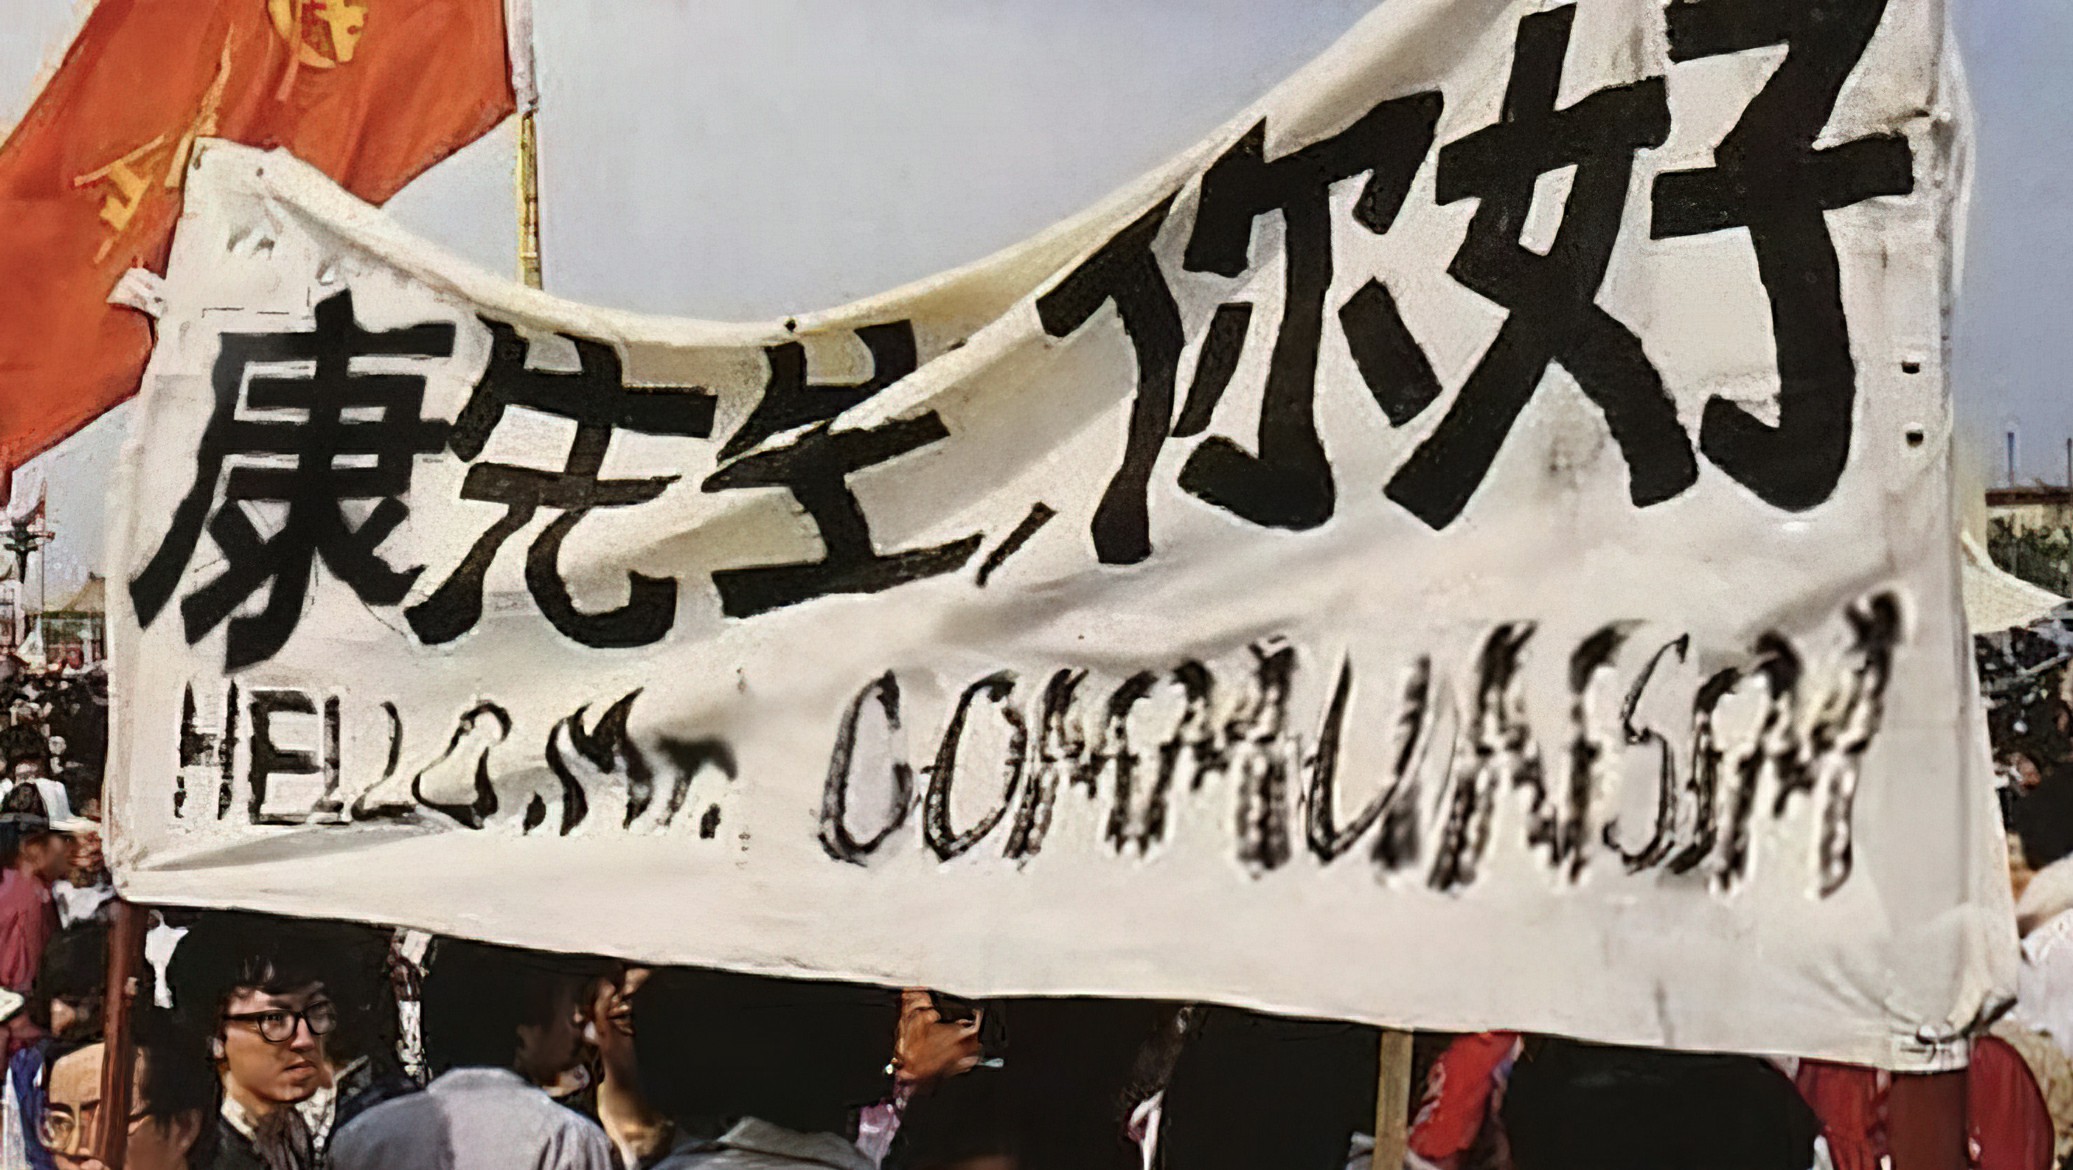 康先生，你好
HELLO, Mr. COMMUNISM